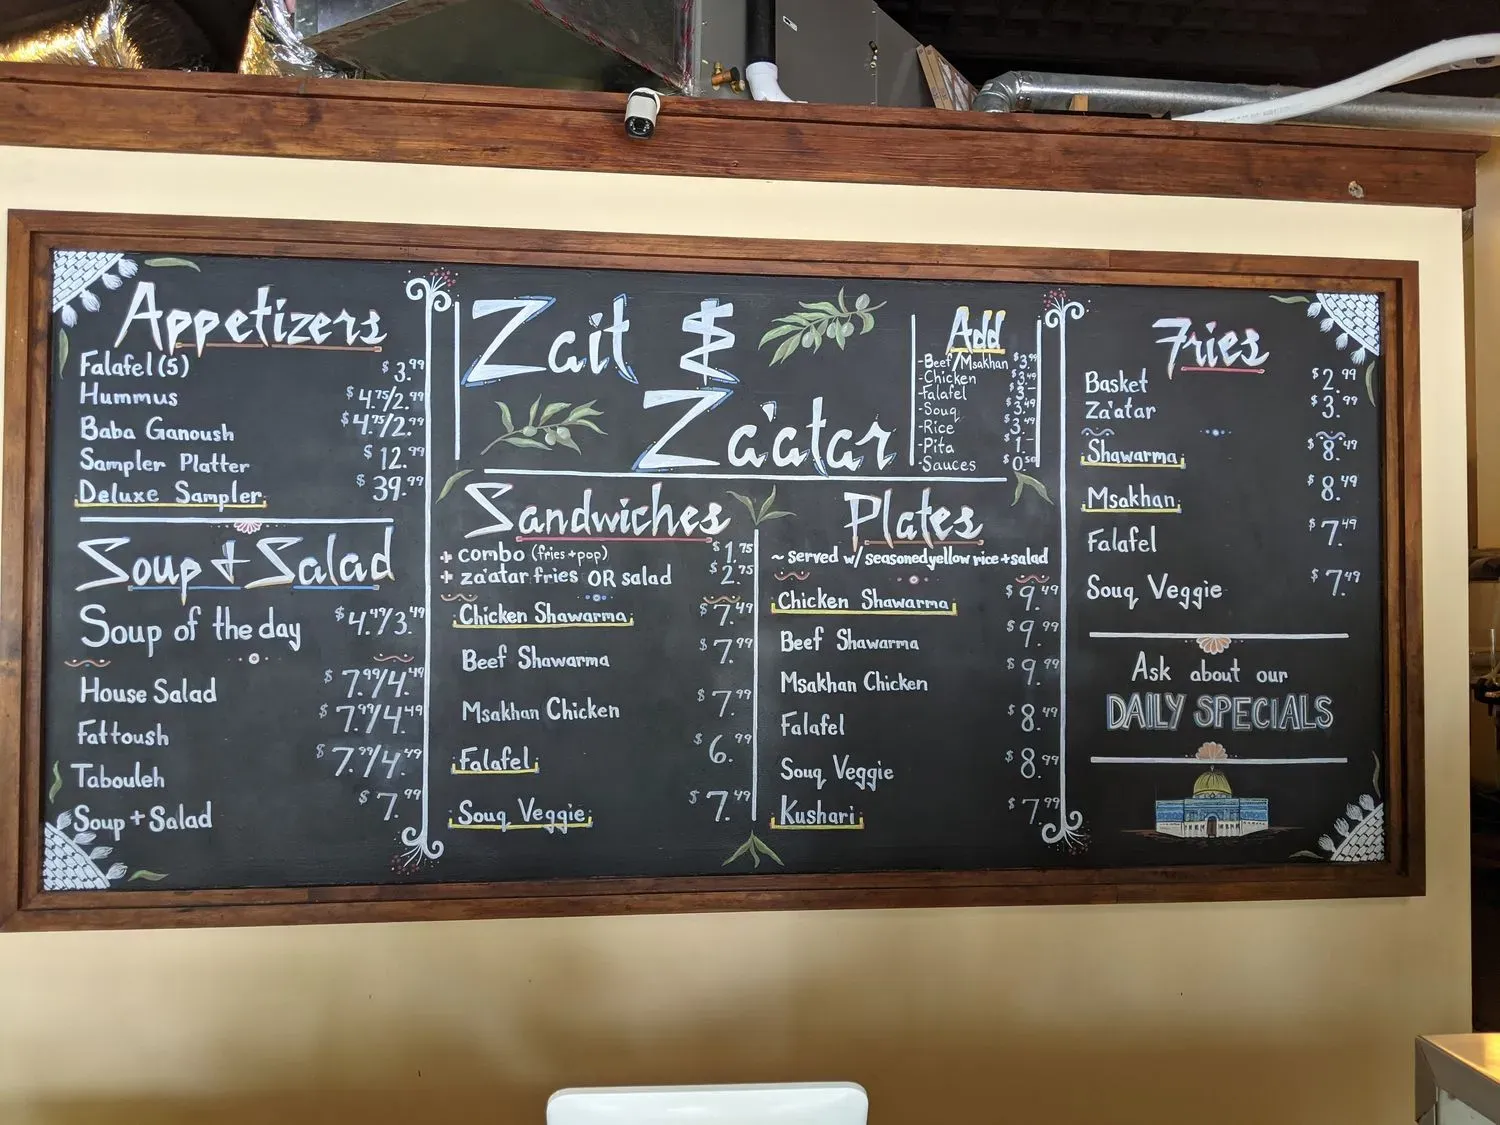 Appetizers
Falafel (5) $3.99
Hummus $4.75/2.99
Baba Ganoush $4.75/2.99
Sampler Platter $12.99
Deluxe Sampler $39.99
Soup + Salad
Soup of the day $4.49/3.49
House Salad $7.99/4.49
Fattoush $7.99/4.49
Tabouleh $7.99/4.49
Soup + Salad $7.99
Zait &
Za'atar
Add
-Beef/Msakhan $3.99
-Chicken $3.49
-Falafel $3.-
-Souq $3.49
-Rice $3.49
-Pita $1.-
-Sauces $0.50
Sandwiches
+ combo (fries + pop) $1.75
+ za'atar fries OR salad $2.75
Chicken Shawarma $7.49
Beef Shawarma $7.99
Msakhan Chicken $7.99
Falafel $6.99
Souq Veggie $7.49
Plates
~ served w/ seasoned yellow rice + salad
Chicken Shawarma $9.49
Beef Shawarma $9.99
Msakhan Chicken $9.99
Falafel $8.49
Souq Veggie $8.99
Kushari $7.99
Fries
Basket $2.99
Za'atar $3.99
Shawarma $8.49
Msakhan $8.49
Falafel $7.49
Souq Veggie $7.49
Ask about our
DAILY SPECIALS